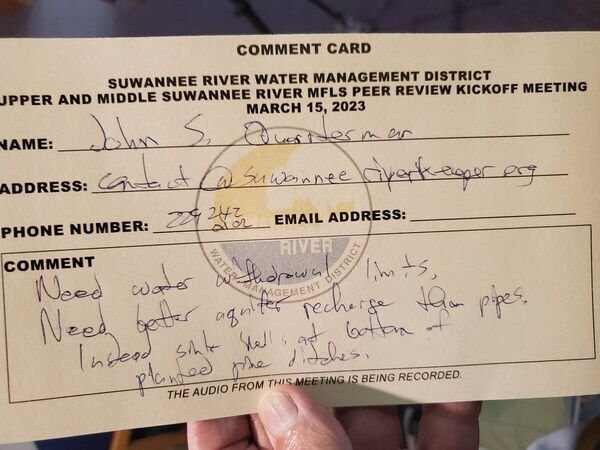 COMMENT CARD
SUWANNEE RIVER WATER MANAGEMENT DISTRICT
UPPER AND MIDDLE SUWANNEE RIVER MFLS PEER REVIEW KICKOFF MEETING
MARCH 15, 2023
NAME: John S. Quarterman
ADDRESS: contact@suwanneeriverkeeper.org
PHONE NUMBER: 229 242 EMAIL ADDRESS:
RIVER
WATER MANAGEMENT DISTRICT
COMMENT
Need water withdrawal limits.
Need better aquifer recharge than pipes.
Instead sink wells at bottom of
planted pine ditches.
THE AUDIO FROM THIS MEETING IS BEING RECORDED.